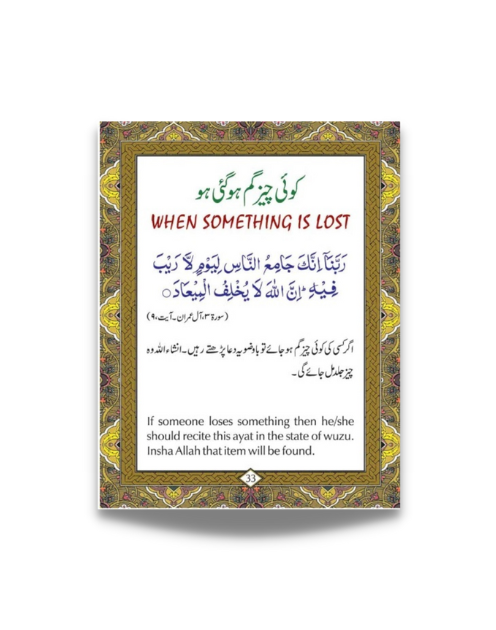 کوئی چیز گم ہوگئی ہو
WHEN SOMETHING IS LOST
رَبَّنَاۤ اِنَّكَ جَامِعُ النَّاسِ لِيَوْمٍ لَّا رَيْبَ
فِيْهِ ؕ اِنَّ اللّٰهَ لَا يُخْلِفُ الْمِيْعَادَ ○
(سورۃ ۳، آل عمران ۔ آیت، ۹)
اگر کسی کی کوئی چیز گم ہو جائے تو باوضو یہ دعا پڑھتے رہیں ۔ انشاء اللہ وہ
چیز جلد مل جائے گی ۔
If someone loses something then he/she
should recite this ayat in the state of wuzu.
Insha Allah that item will be found.
33